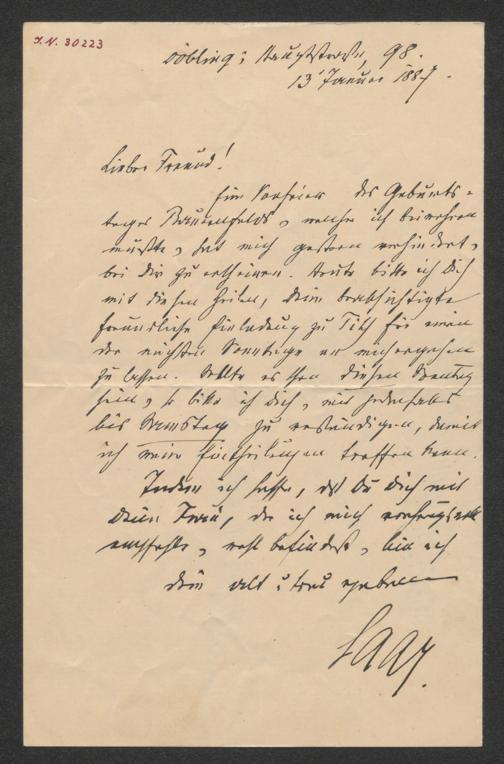 I.N. 30223
Döbling, Hauptstrasse, 98.
13' Januar 1887.
Lieber Freund!
Eine Vorfeier des Geburts-
tages Bauernfelds, welcher ich beiwohnen
mußte, hat mich gestern verhindert,
bei Dir zu erscheinen. Heute bitte ich Dich
mit diesen Zeilen, Deine beabsichtigte
freundliche Einladung zu Tisch für einen
der nächsten Sonntage an mich ergehen
zu lassen. Sollte es schon diesen Sonntag
sein, so bitte ich Dich, mich jedenfalls
bis Samstag zu verständigen, damit
ich meine Eintheilungen treffen kann.
Indem ich hoffe, daß Du Dich mit
Deiner Frau, der ich mich
empfehle, wohl befindest, bin ich
Dein alt u. treu ergebener
Saar.